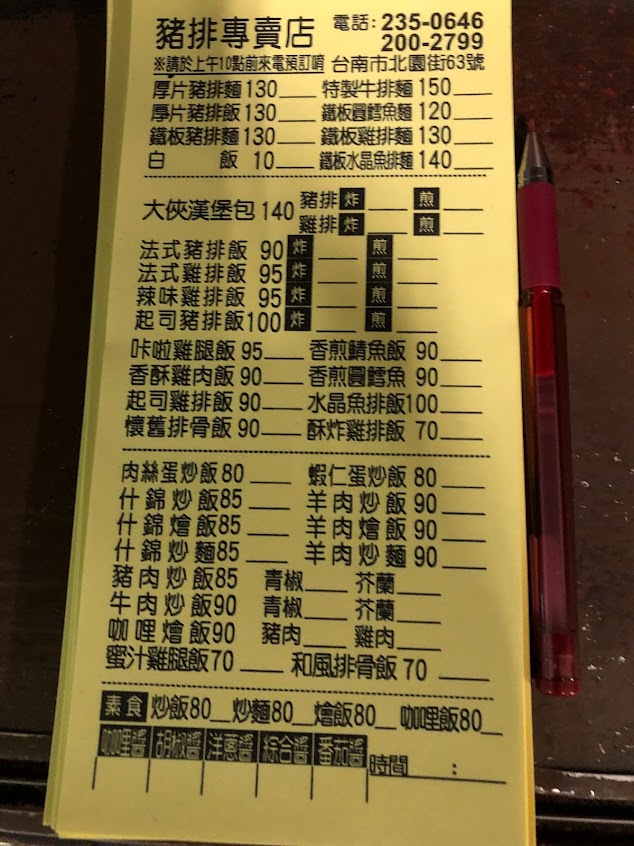 豬排專賣店 電話: 235-0646
200-2799
※請於上午10點前來電預訂唷 台南市北園街63號
厚片豬排麵130 特製牛排麵150
厚片豬排飯130 鐵板圓鱈魚麵120
鐵板豬排麵130 鐵板雞排麵130
白飯10 鐵板水晶魚排麵140
大俠漢堡包140 豬排 炸 煎
雞排 炸 煎
法式豬排飯 90 炸 煎
法式雞排飯 95 炸 煎
辣味雞排飯 95 炸 煎
起司豬排飯100 炸 煎
咔啦雞腿飯 95 香煎鯖魚飯 90
香酥雞肉飯 90 香煎圓鱈魚 90
起司雞排飯 90 水晶魚排飯100
懷舊排骨飯 90 酥炸雞排飯 70
肉絲蛋炒飯80 蝦仁蛋炒飯 80
什錦炒飯85 羊肉炒飯 90
什錦燴飯85 羊肉燴飯 90
什錦炒麵85 羊肉炒麵 90
豬肉炒飯85 青椒 芥蘭
牛肉炒飯90 青椒 芥蘭
咖哩燴飯90 豬肉 雞肉
蜜汁雞腿飯70 和風排骨飯 70
素食 炒飯80 炒麵80 燴飯80 咖哩飯80
咖哩醬 胡椒醬 洋蔥醬 綜合醬 番茄醬 時間 :